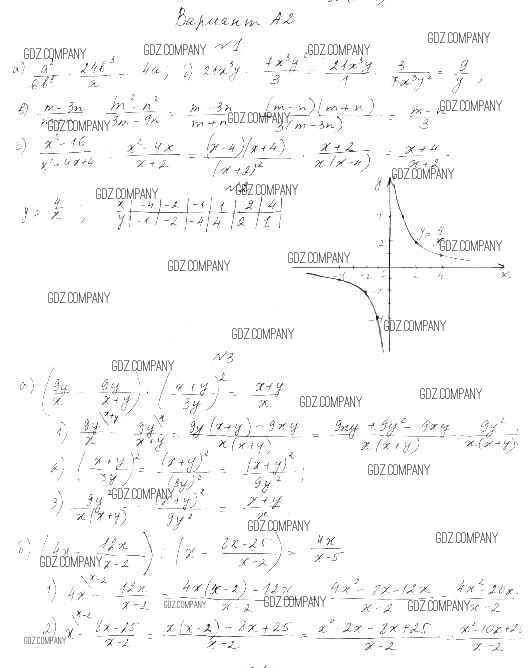 Вариант А2
№1
а) a²/6b² · 24b³/a = 4a, б) 21x³y : 7x³y²/3 = 21x³y/1 · 3/7x³y² = 9/y,
в) m-3n/m+n · m²-n²/3m-9n = m-3n/m+n · (m-n)(m+n)/3(m-3n) = m-n/3
x²-16/x²+4x+4 : x²-4x/x+2 = (x-4)(x+4)/(x+2)² · x+2/x(x-4) = x+4/x+2
y = 4/x; x | -4 | -2 | -1 | 1 | 2 | 4
y | -1 | -2 | -4 | 4 | 2 | 1
y = 4/x
№3
а) (9y/x - 9y/x+y) · (x+y/3y)² = x+y/x
1) 9y/x - 9y/x+y = 9y(x+y)-9xy/x(x+y) = 9xy+9y²-9xy/x(x+y) = 9y²/x(x+y)
2) (x+y/3y)² = (x+y)²/(3y)² = (x+y)²/9y²;
3) 9y²/x(x+y) · (x+y)²/9y² = x+y/x
б) (4x - 12x/x-2) : (x - 8x-25/x-2) = 4x/x-5
1) 4x - 12x/x-2 = 4x(x-2)-12x/x-2 = 4x²-8x-12x/x-2 = 4x²-20x/x-2
2) x - 8x-25/x-2 = x(x-2)-8x+25/x-2 = x²-2x-8x+25/x-2 = x²-10x+25/x-2
GDZ.COMPANY